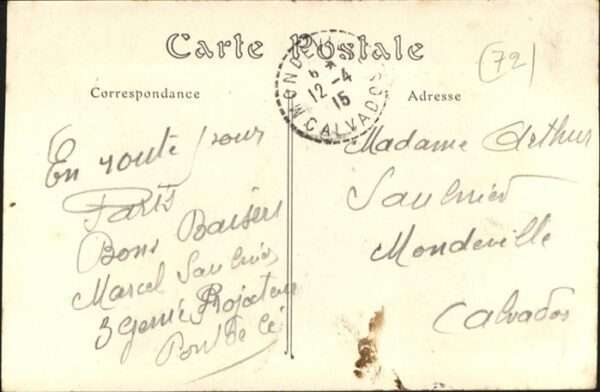 Carte Postale
(72)
Correspondance
Adresse
MONDEVILLE
6 *
12-4
15
CALVADOS
En route pour
Paris
Bons Baisers
Marcel Saulnier
3 Genie Projecteur
Pont de Cé
Madame Arthur
Saulnier
Mondeville
Calvados